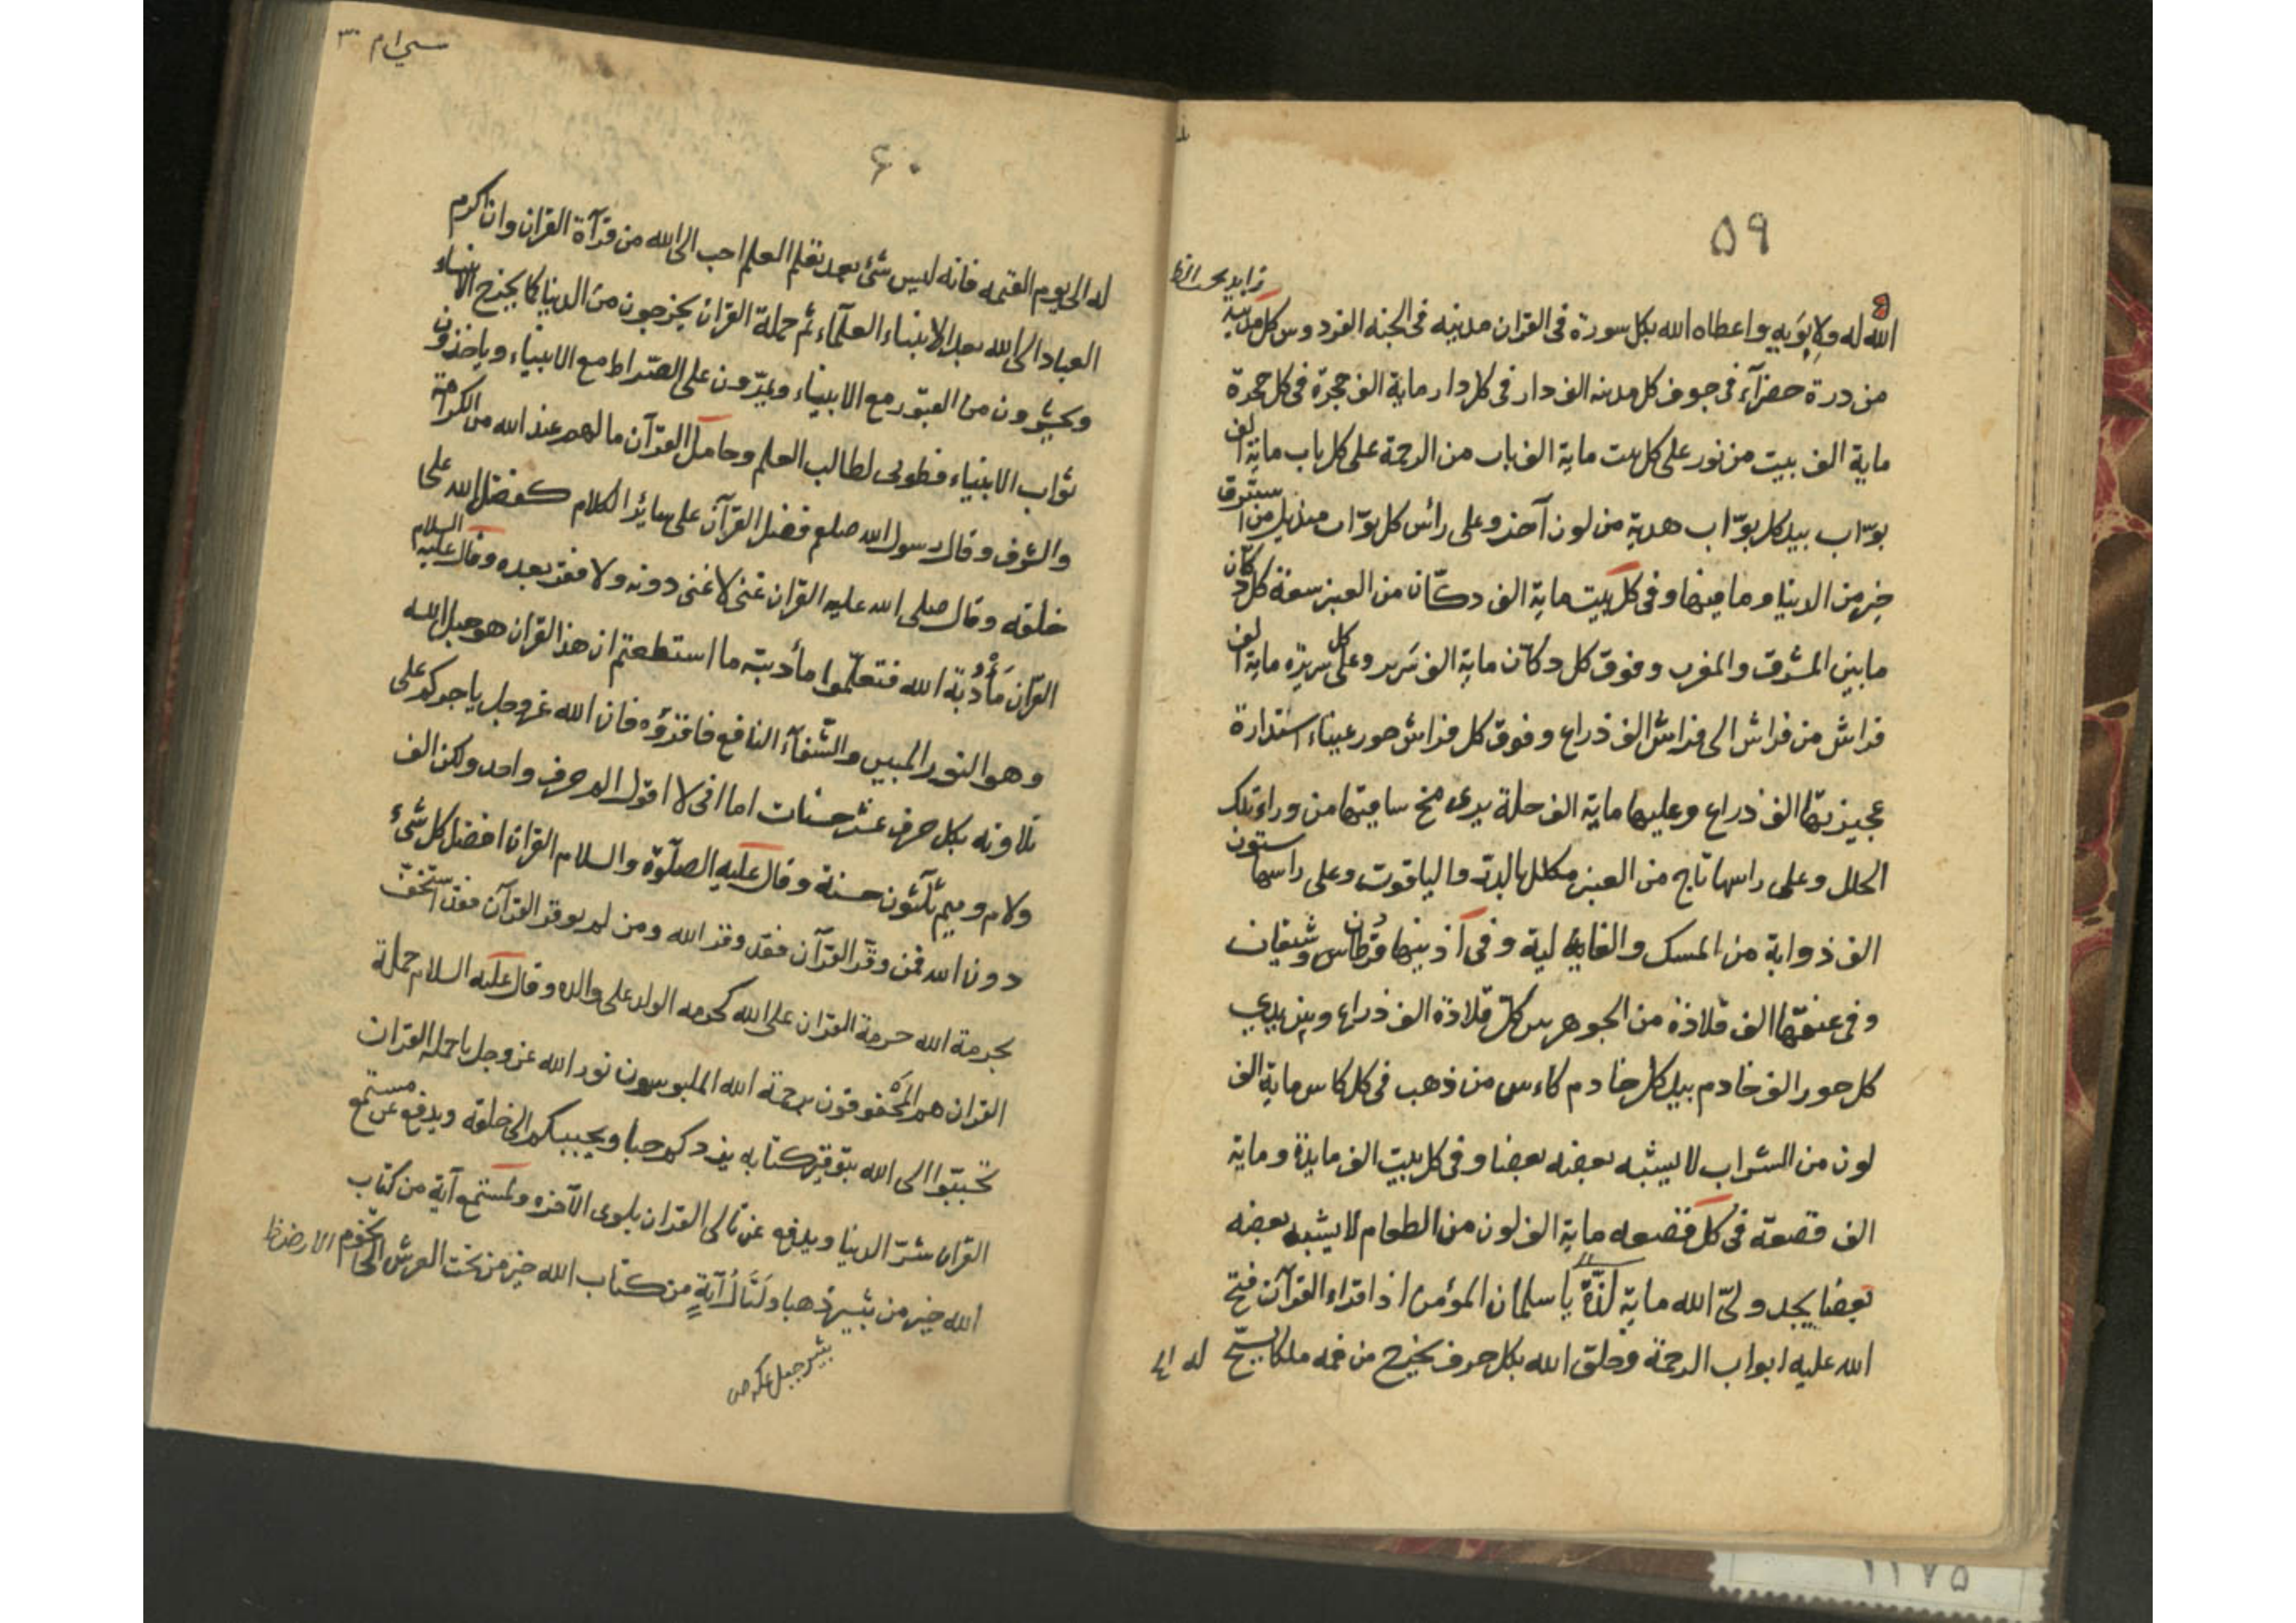 ٥٩
الله له ولابويه واعطاه الله بكل سورة فى القران مدينه فى الجنه الفردوس كل مدينة
من درة خضرآء فى جوف كل مدينه الف دار فى كل دار ماية الف حجرة فى كل حجرة
ماية الف بيت من نور على كل بيت ماية الف باب من الرحمة على كل باب ماية الف
بوّاب بيد كل بوّاب هدية من لون آخر وعلى رأس كل بوّاب منديل من استبرق
خير من الدنيا وما فيها وفى كل بيت ماية الف دكّان من العنبر سعة كل دكّان
ما بين المشرق والمغرب وفوق كل دكان ماية الف سرير وعلى كل سرير ماية الف
فراش من فراش الى فراش الف ذراع وفوق كل فراش حور عيناء استدارة
عجيزتها الف ذراع وعليها ماية الف حلة يرى مخ ساقيها من وراء تلك
الحلل وعلى راسها تاج من العنبر مكلل بالدر والياقوت وعلى راسها ستون
الف ذوابة من المسك والغالية وفى آذينها قرطان وشنفان
وفى عنقها الف قلادة من الجوهر بين كل قلادة الف ذراع وبين يدى
كل حور الف خادم بيد كل خادم كاءس من ذهب فى كل كاس ماية الف
لون من الشراب لا يشبه بعضه بعضا وفى كل بيت الف مايدة وماية
الف قصعة فى كل قصعه ماية الف لون من الطعام لا يشبه بعضه
بعضا يجد ولىّ الله ماية لذّة يا سلمان المؤمن اذا قراء القرآن فتح
الله عليه ابواب الرحمة وخلق الله بكل حرف يخرج من فمه ملكا يسبّح
له الى
٦٠
له الى يوم القيمه فانه ليس شئ بعد تعلم العلم احب الى الله من قرآءة القران وان اكرم
العباد الى الله بعد الانبياء العلمآء ثم حملة القران يخرجون من الدنيا كما يخرج الانبياء
ويحشرون من القبور مع الانبياء ويمرّون على الصّراط مع الانبياء وياخذون
ثواب الانبياء فطوبى لطالب العلم وحامل القرآن ما لهم عند الله من الكرامة
والشرف وقال رسول الله صلعم فضل القرآن على سائر الكلام كفضل الله على
خلقه وقال صلى الله عليه القران غنى لا غنى دونه ولا فقر بعده وقال عليه السلام
القران مَأْدُبَة الله فتعلّموا مأدبته ما استطعتم ان هذا القران هو حبل الله
وهو النور المبين والشّفآء النافع فاقرؤه فان الله عز وجل ياجركم على
تلاوته بكل حرف عشر حسنات اما انى لا اقول الم حرف واحد ولكن الف
ولام وميم ثلثون حسنة وقال عليه الصلوة والسلام القران افضل كل شئ
دون الله فمن وقّر القرآن فقد وقر الله ومن لم يوقر القرآن فقد استخفّ
بحرمة الله حرمة القران على الله كحرمه الوالد على والده وقال عليه السلام حملة
القران هم المحفوفون برحمة الله الملبوسون نور الله عز وجل يا حمله القران
تحببّوا الى الله بتوقير كتابه يزدكم حبا ويحببكم الى خلقه ويدفع عن مستمع
القران شرّ الدنيا ويدفع عن تالى القران بلوى الآخره ولمستمع آية من كتاب
الله خير من ثبير ذهبا ولتال آيةٍ من كتاب الله خير من تحت العرش الى تخوم الارض ظ
ثبير جبل